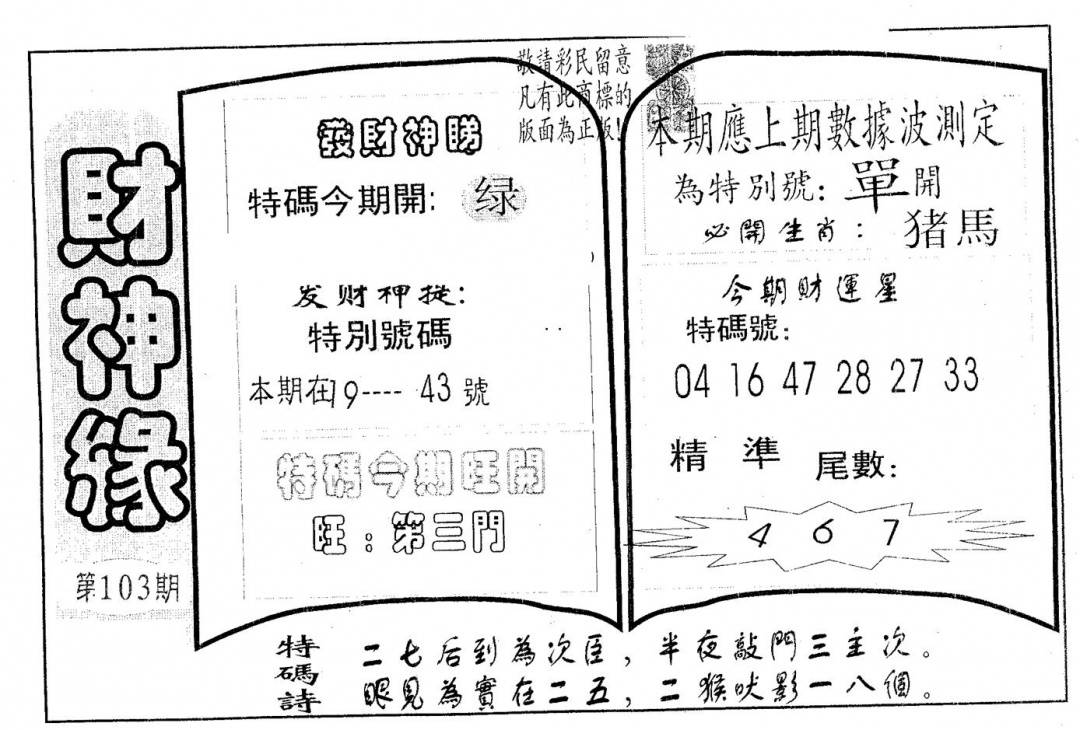 財神緣
第103期
敬請彩民留意
凡有此商標的
版面為正版!
發財神睇
特碼今期開: 绿
发财神捉:
特別號碼
本期在19----43號
特碼今期旺開
旺:第三門
本期應上期數據波測定
為特別號:單開
必開生肖:猪馬
今期財運星
特碼號:
04 16 47 28 27 33
精準 尾數:
4 6 7
特碼詩
二七后到為次臣,半夜敲門三主次。
眼見為實在二五,二猴吠影一八個。